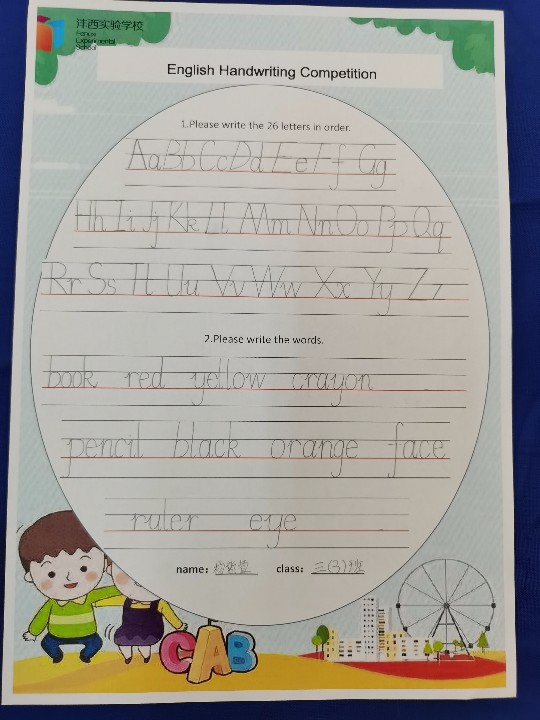 沣西实验学校
Fengxi
Experimental
School
English Handwriting Competition
1.Please write the 26 letters in order.
AaBbCcDdEeFfGg
HhIiJjKkLlMmNnOoPpQq
RrSsTtUuVvWwXxYyZz
2.Please write the words.
book red yellow crayon
pencil black orange face
ruler eye
name: class: 三(3)班
CAB